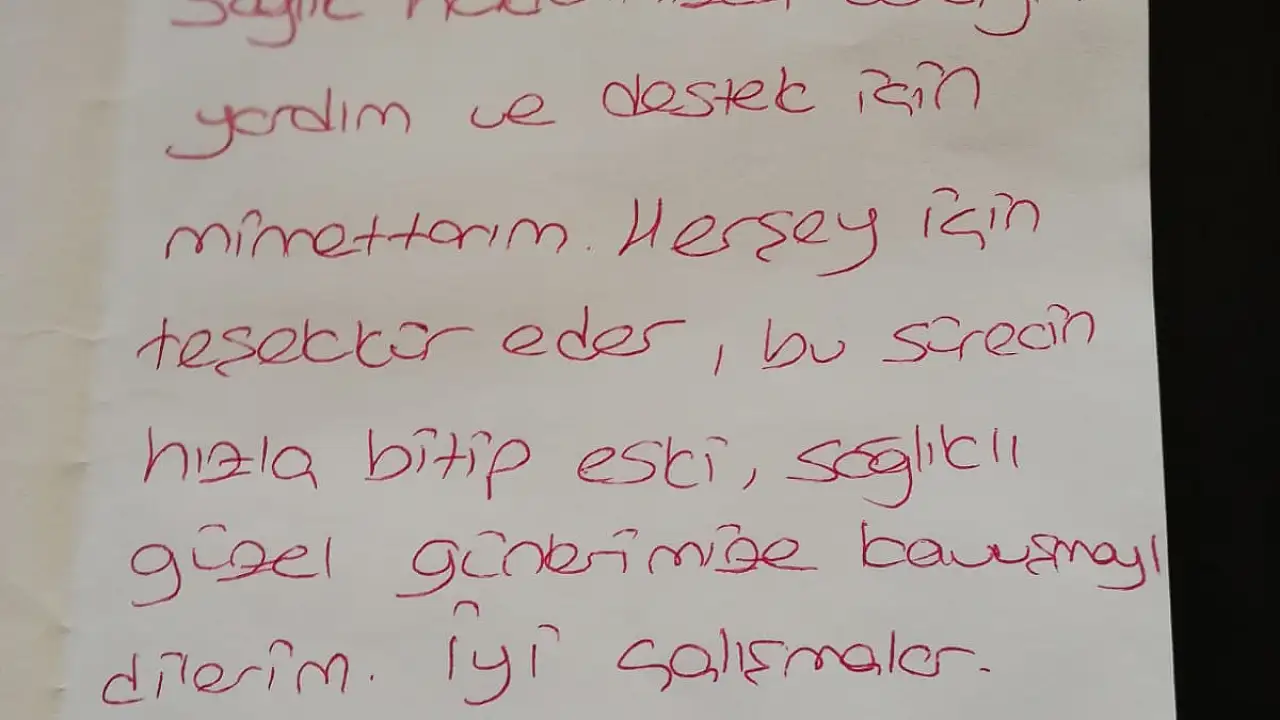 yardım ve destek için
minnettarım. Herşey için
teşekkür eder, bu sürecin
hızla bitip eski, sağlıklı
güzel günlerimize kavuşmayı
dilerim. İyi çalışmalar.